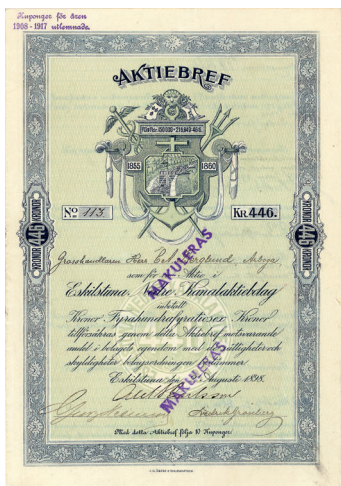 Kuponger för åren
1908-1917 utlemnade.
AKTIEBREF
1855
1860
No 113
KR. 446.
KRONOR 446 KRONOR
KRONOR 446 KRONOR
Grosshandlaren Herr Berglund, Arboga
som för Aktie i
Eskilstuna Kanalaktiebolag
inbetalt
Kronor Fyrahundrafyratiosex
tillförsäkras genom detta Aktiebref motsvarande
andel i bolagets egendom med de rättigheter och
skyldigheter bolagsordningen bestämmer.
Eskilstuna den Augusti 1898.
MAKULERAS
MAKULERAS
Med detta Aktiebref följa 10 Kuponger.